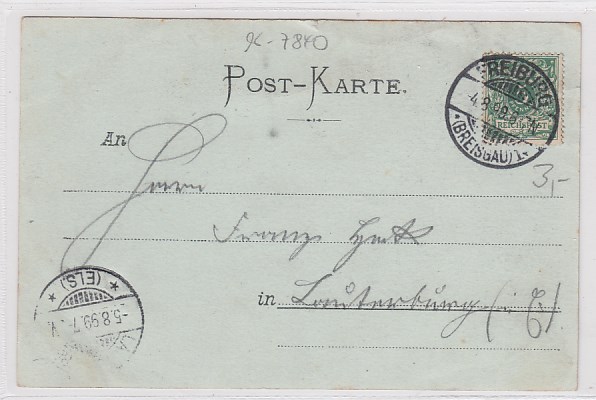 9c-7840
POST-KARTE.
FREIBURG
4.8.99.8
*(BREISGAU)1.*
REICHSPOST
3,-
An
Herrn
Franz
in Lauterburg (i. E.).
* (ELS) *
-5.8.99.7-
V